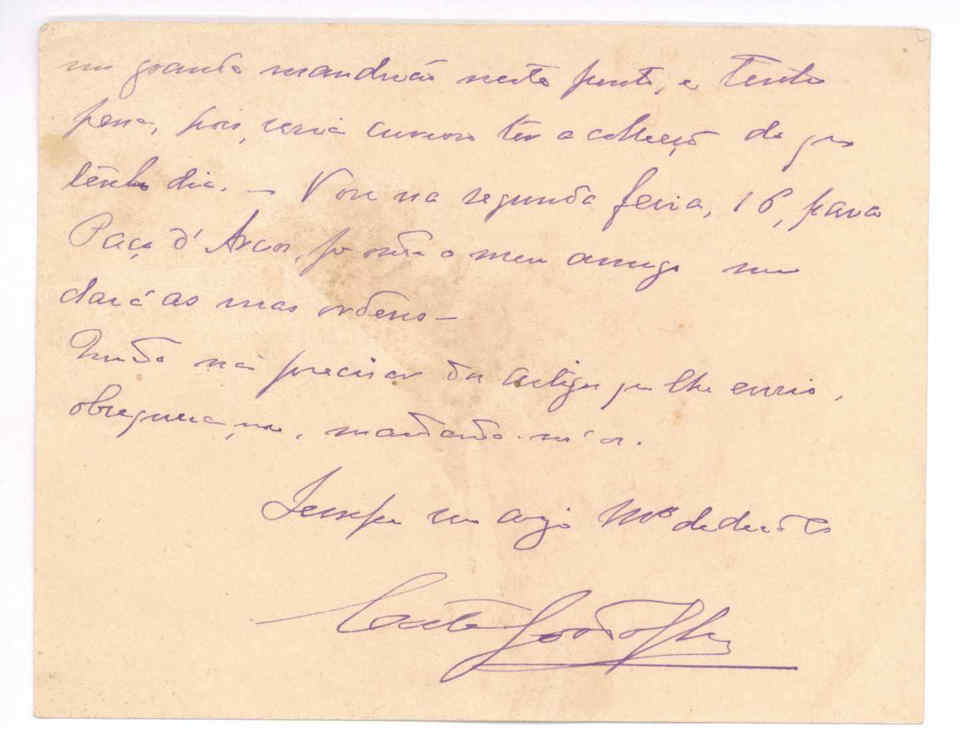 um grande mandrião neste ponto, e tenho
pena, pois seria curioso ter a collecção do que
tenho dia. — Vou na segunda feira, 16, para
Paço d'Arcos, p. onde o meu amigo me
dará as suas ordens —
não precisar do artigo que lhe envio,
obsequeia-me, mandando-m'o.
Sempre seu amigo Mto dedicado